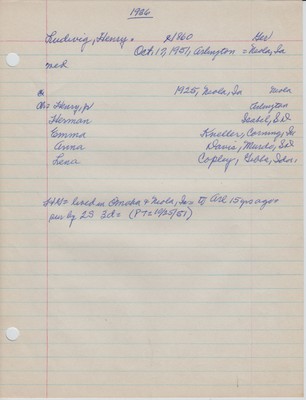 1926
Ludwig, Henry. 1860 Ger
Oct. 17, 1951, Arlington = Neola, Ia
1925, Neola, Ia Neola
Ch = Henry, Jr Arlington
Herman Isabel, S.D
Emma Kneller, Corning, Ia
Anna Davis, Murdo, S.D
Lena Copley, Gibbs, Idaho.
lived in Omaha & Neola, Ia = Arl 15 yrs ago =
sur by 2S 3d = (PT = 1925/51)